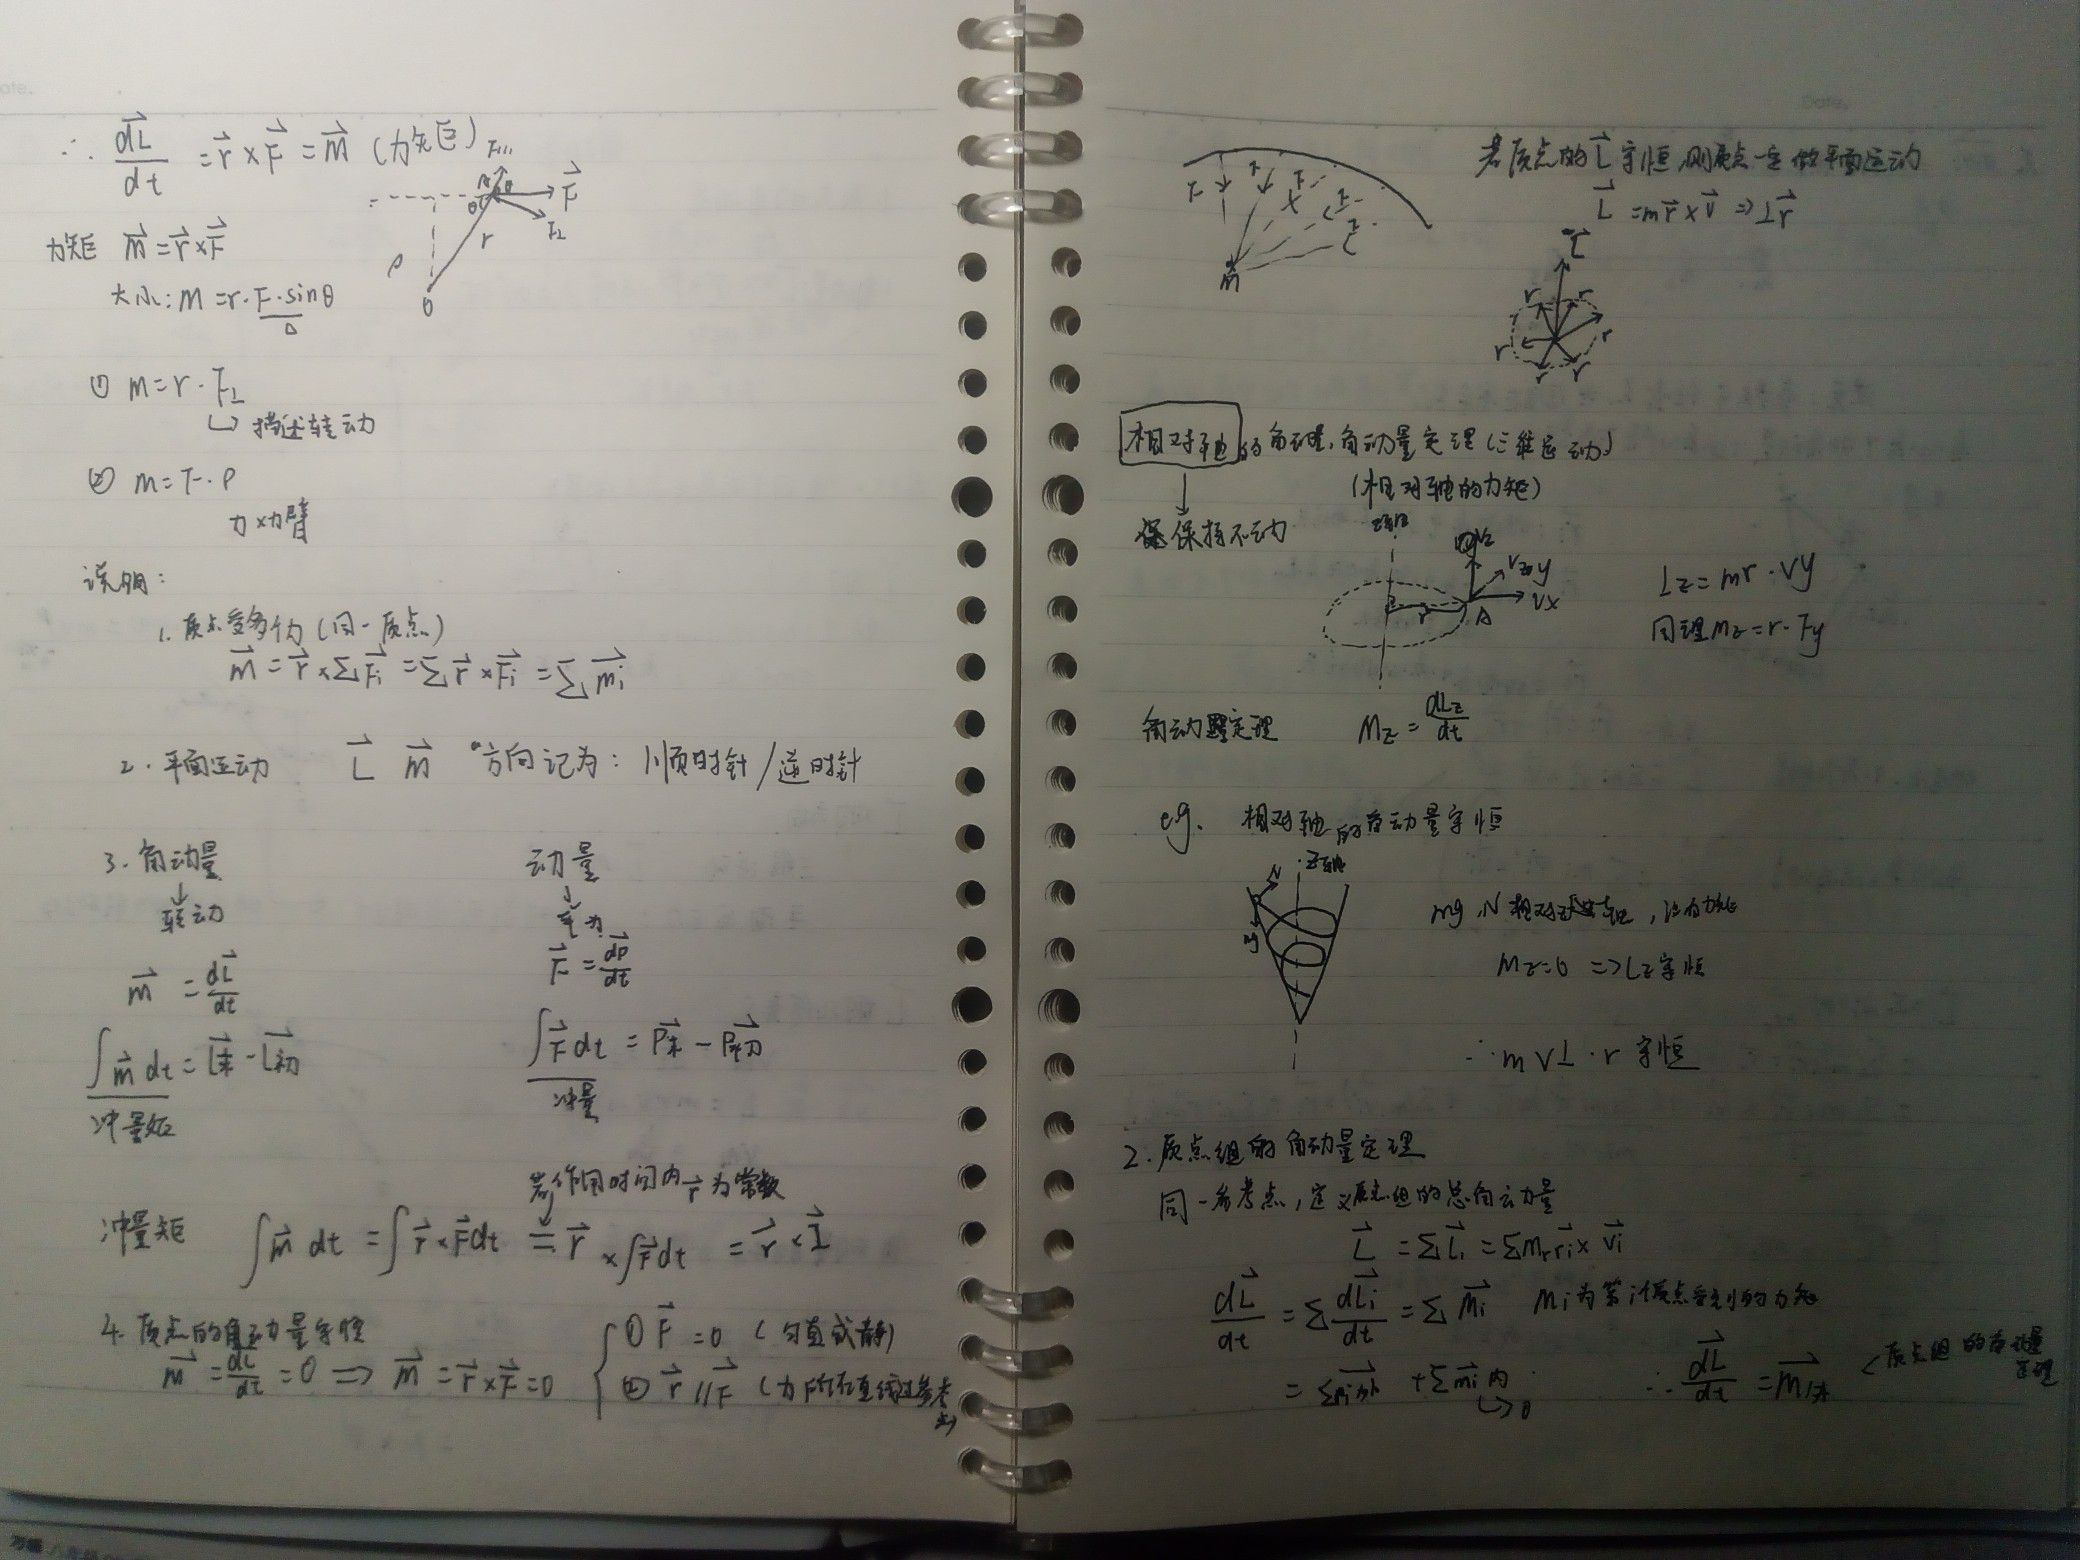 ∴ dL⃗/dt = r⃗ × F⃗ = m⃗ (力矩)
F⃗
F⊥
θ
r
ρ
O
力矩 m⃗ = r⃗ × F⃗
大小: m = r · F · sinθ
① m = r · F⊥
↳ 描述转动
② m = F · ρ
力 × 力臂
说明:
1. 质点受多个力 (同一质点)
m⃗ = r⃗ × ΣF⃗i = Σ r⃗ × F⃗i = Σ m⃗i
2. 平面运动 L⃗ m⃗ 方向记为: 顺时针/逆时针
3. 角动量 动量
↓ ↓
转动
m⃗ = dL⃗/dt F⃗ = dp⃗/dt
∫m⃗ dt = L⃗末 - L⃗初 ∫F⃗ dt = P⃗末 - P⃗初
冲量矩 冲量
若作用时间内 r⃗ 为常数
冲量矩 ∫m⃗ dt = ∫r⃗ × F⃗ dt = r⃗ × ∫F⃗ dt = r⃗ × I⃗
4. 质点的角动量守恒
m⃗ = dL⃗/dt = 0 => m⃗ = r⃗ × F⃗ = 0
① F⃗ = 0 (匀直或静)
② r⃗ // F⃗ (力F所在直线过参考点)
若质点的L⃗守恒,则质点一定做平面运动
L⃗ = m r⃗ × v⃗ => ⊥r⃗
F F F F F
M
L⃗
r r r r r r
相对轴的角动量,角动量定理 (三维运动)
(相对轴的力矩)
↓
保持不动
Vz
Vy
Vx
r
A
Lz = mr · Vy
同理 Mz = r · Fy
角动量定理 Mz = dLz/dt
eg. 相对轴的角动量守恒
z轴
N
mg
mg, N 相对z轴,没有力矩
Mz = 0 => Lz守恒
∴ m v⊥ · r 守恒
2. 质点组的角动量定理
同一参考点,定义质点组的总角动量
L⃗ = ΣL⃗i = Σmi r⃗i × v⃗i
dL⃗/dt = Σ dL⃗i/dt = Σ M⃗i Mi为第i个质点受到的力矩
= Σm⃗i外 + Σm⃗i内
↳ 0
∴ dL⃗/dt = M⃗外 < 质点组的角动量定理